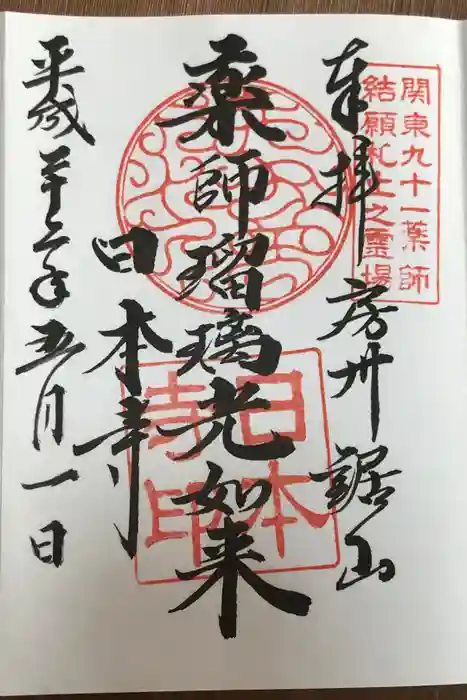 関東九十一薬師
結願札止之霊場
奉拝 房州鋸山
薬師瑠璃光如来
日本寺
日本
寺印
平成 年五月一日